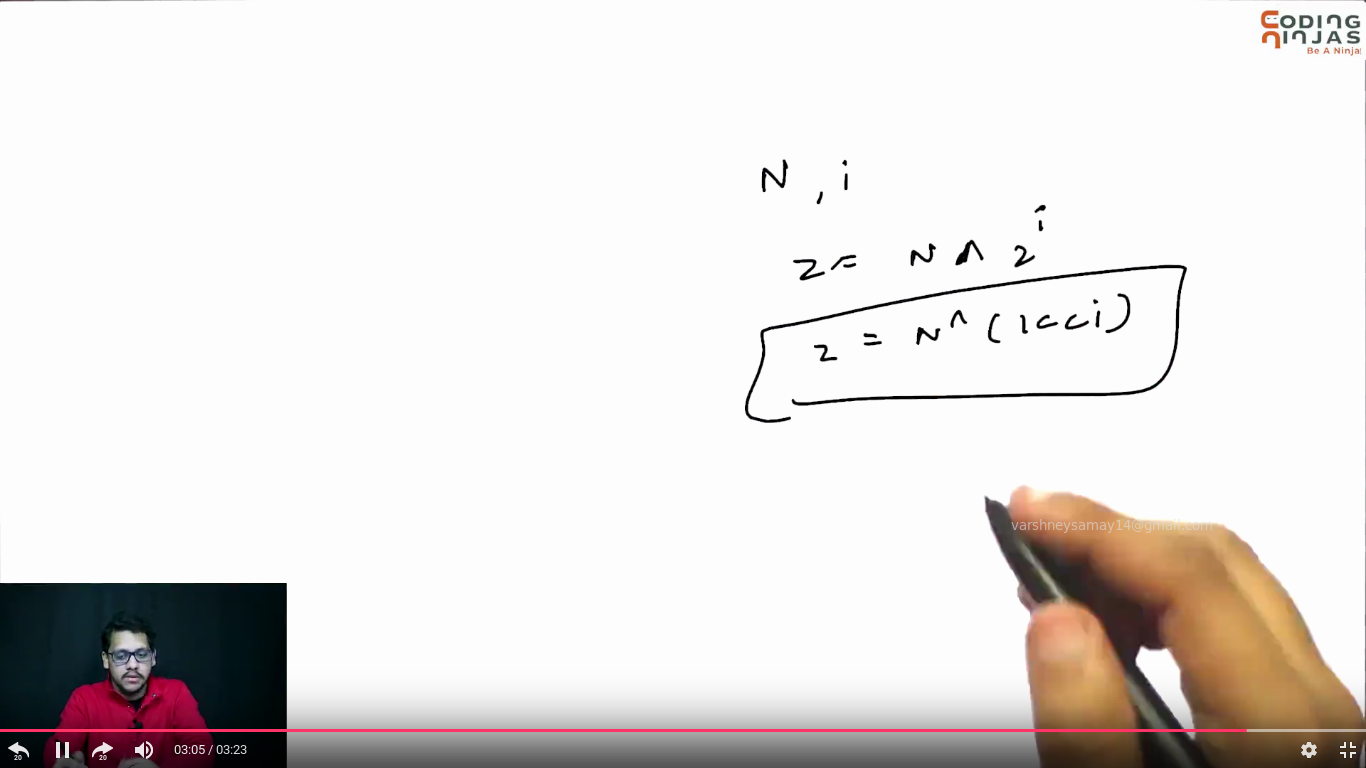 CODING
NINJAS
Be A Ninja
N , i
z = N ^ 2^i
z = N ^ (1<<i)
varshneysamay14@gmail.com
20
20
03:05 / 03:23